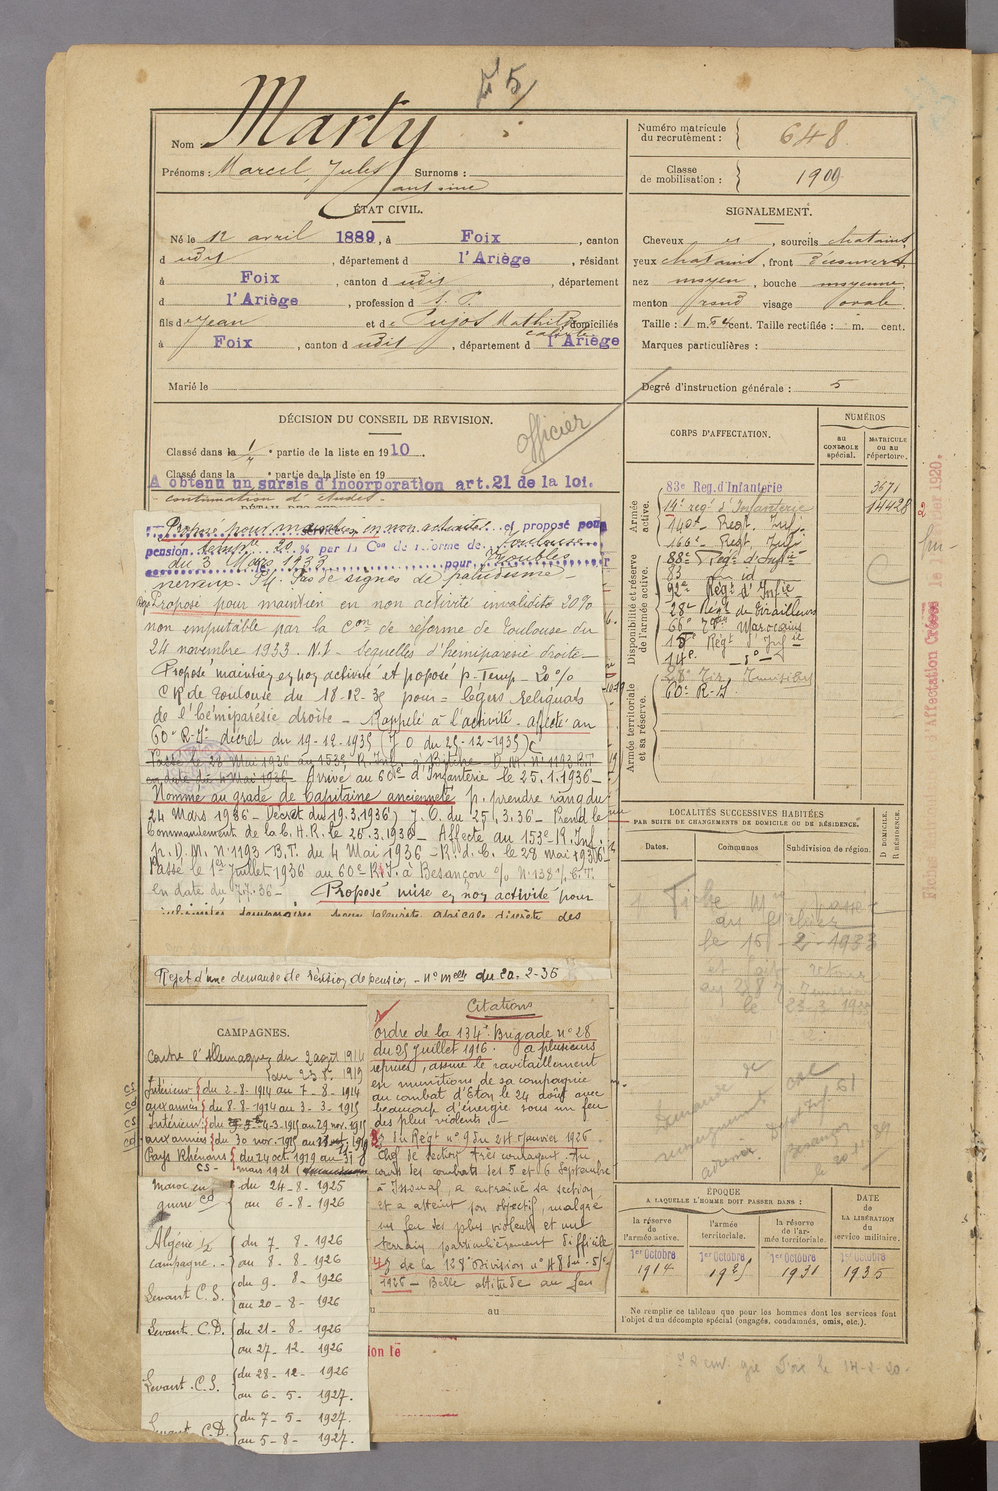 5
Nom : Marty
Prénoms : Marcel, Jules Surnoms :
antoine
ÉTAT CIVIL.
Né le 12 avril 1889, à Foix, canton
d udit, département d l'Ariège, résidant
à Foix, canton d udit, département
d l'Ariège, profession d
fils de Jean et de Pujos Mathilde domiciliés
à Foix, canton d udit, département d l'Ariège
Marié le
DÉCISION DU CONSEIL DE REVISION.
Classé dans la 1 e partie de la liste en 1910.
Classé dans la e partie de la liste en 19
A obtenu un sursis d'incorporation art. 21 de la loi.
continuation d'études-
officier
Numéro matricule
du recrutement : 648
Classe
de mobilisation : 1909
SIGNALEMENT.
Cheveux et, sourcils chatains,
yeux chatains, front découvert
nez moyen, bouche moyenne,
menton rond visage ovale.
Taille : 1 m. 64 cent. Taille rectifiée : m. cent.
Marques particulières :
Degré d'instruction générale : 5
CORPS D'AFFECTATION.
NUMÉROS
AU CONTROLE spécial.
MATRICULE ou au répertoire.
Armée active.
83e Reg. d'Infanterie 3671
14e regt d'Infanterie 14428
140e Regt. Inf.
166e Regt. Inf.
Disponibilité et réserve de l'armée active.
88e Regt d'Infie
83 id
92e Regt d'Infie
28e Regt de Tirailleurs
66e Marocains
15e Regt d'Infie
14e
Armée territoriale et sa réserve.
28e Tir. Tunisiens
60e R.I.
Proposé pour maintien en non activité et proposé pour
pension 20 % par la Con de réforme de Toulouse
du 3 Mars 1933 pour troubles
nerveux. P4. Pas de signes de paludisme-
Proposé pour maintien en non activité invalidité 20%
non imputable par la Con de réforme de Toulouse du
24 novembre 1933. N.I - Sequelles d'hémiparesie droite-
Proposé maintien en non activité et proposé p. Temp - 20%
CR de Toulouse du 18.12.34 pour légers reliquats
de l'hémiparésie droite - Rappelé à l'activité affecté au
60e R.I. décret du 19-12-1935 (J O du 25-12-1935)
Passé le 28 Mai 1936 au 153e R. Inf. d' Bitche - D. M. N° 1193 B.T.
en date du 4 Mai 1936 - Arrivé au 60e d'Infanterie le 25.1.1936-
Nommé au grade de Capitaine ancienneté p. prendre rang du
24 Mars 1936 - Décret du 19.3.1936) J. O. du 25.3.36 - Prend le
Commandement de la C. H. R. le 26.3.1936 - Affecté au 153e R. Inf.
p. D. M. N° 1193 B.T. du 4 Mai 1936 - R. d. C. le 28 Mai 1936
Passé le 1er Juillet 1936 au 60e R.I. à Besançon N° 138 % C.T.
en date du 7.7.36- Proposé mise en non activité pour
Rejet d'une demande de révision de pension - ne melle du 20.2-36
LOCALITÉS SUCCESSIVES HABITÉES
PAR SUITE DE CHANGEMENTS DE DOMICILE OU DE RÉSIDENCE.
Dates. Communes Subdivision de région. D. DOMICILE. R. RÉSIDENCE.
Fiche Mle passée
au fichier
le 16-2-1933
et fait retour
au 28e Tunisien
le 23-3 1933
Demande de
renseignements
adresse.
Besançon
Fiches d'Affectation Créées le 15 Mars 1920.
CAMPAGNES.
Contre l'Allemagne du 2 août 1914
au 23 8. 1919
cs Intérieur du 2-8-1914 au 7-8-1914
cd aux armées du 8.8.1914 au 3-3-1915
cs Intérieur du 4-3-1915 au 29 nov. 1915
cd aux armées du 30 nov. 1915 au 1919
Pays Rhénans du 24 oct. 1919 au 31
cs- mars 1921
Maroc en du 24-8-1925
guerre cd au 6-8-1926
Algérie 1/2 du 7-8-1926
campagne.- au 8-8-1926
Levant C.S. du 9-8-1926
au 20-8-1926
Levant. C.D. du 21-8-1926
au 27-12-1926
Levant.C.S. du 28-12-1926
au 6-5-1927.
Levant C.D. du 7-5-1927.
au 5-8-1927.
Citations
ordre de la 134e Brigade n° 28
du 25 Juillet 1916. a plusieurs
reprises, assuré le ravitaillement
en munitions de sa compagnie
au combat d'Eton le 24 août avec
beaucoup d'énergie sous un feu
des plus violents.-
du Regt n° 9 du 24 Janvier 1926
Chef de section très courageux. Au
cours des combats des 5 et 6 Septembre
à Issoual, a entrainé sa section
et a atteint son objectif, malgré
un feu des plus violents et un
terrain particulièrement difficile
de la 128e Division n° 48 du
1926 - Belle attitude au feu
au
ÉPOQUE
A LAQUELLE L'HOMME DOIT PASSER DANS :
la réserve de l'armée active. l'armée territoriale. la réserve de l'armée territoriale.
DATE DE LA LIBÉRATION du service militaire.
1er Octobre 1er Octobre 1er Octobre 1er Octobre
1914 1925 1931 1935
Ne remplir ce tableau que pour les hommes dont les services font
l'objet d'un décompte spécial (engagés, condamnés, omis, etc.).
Foix le 14-2-20-